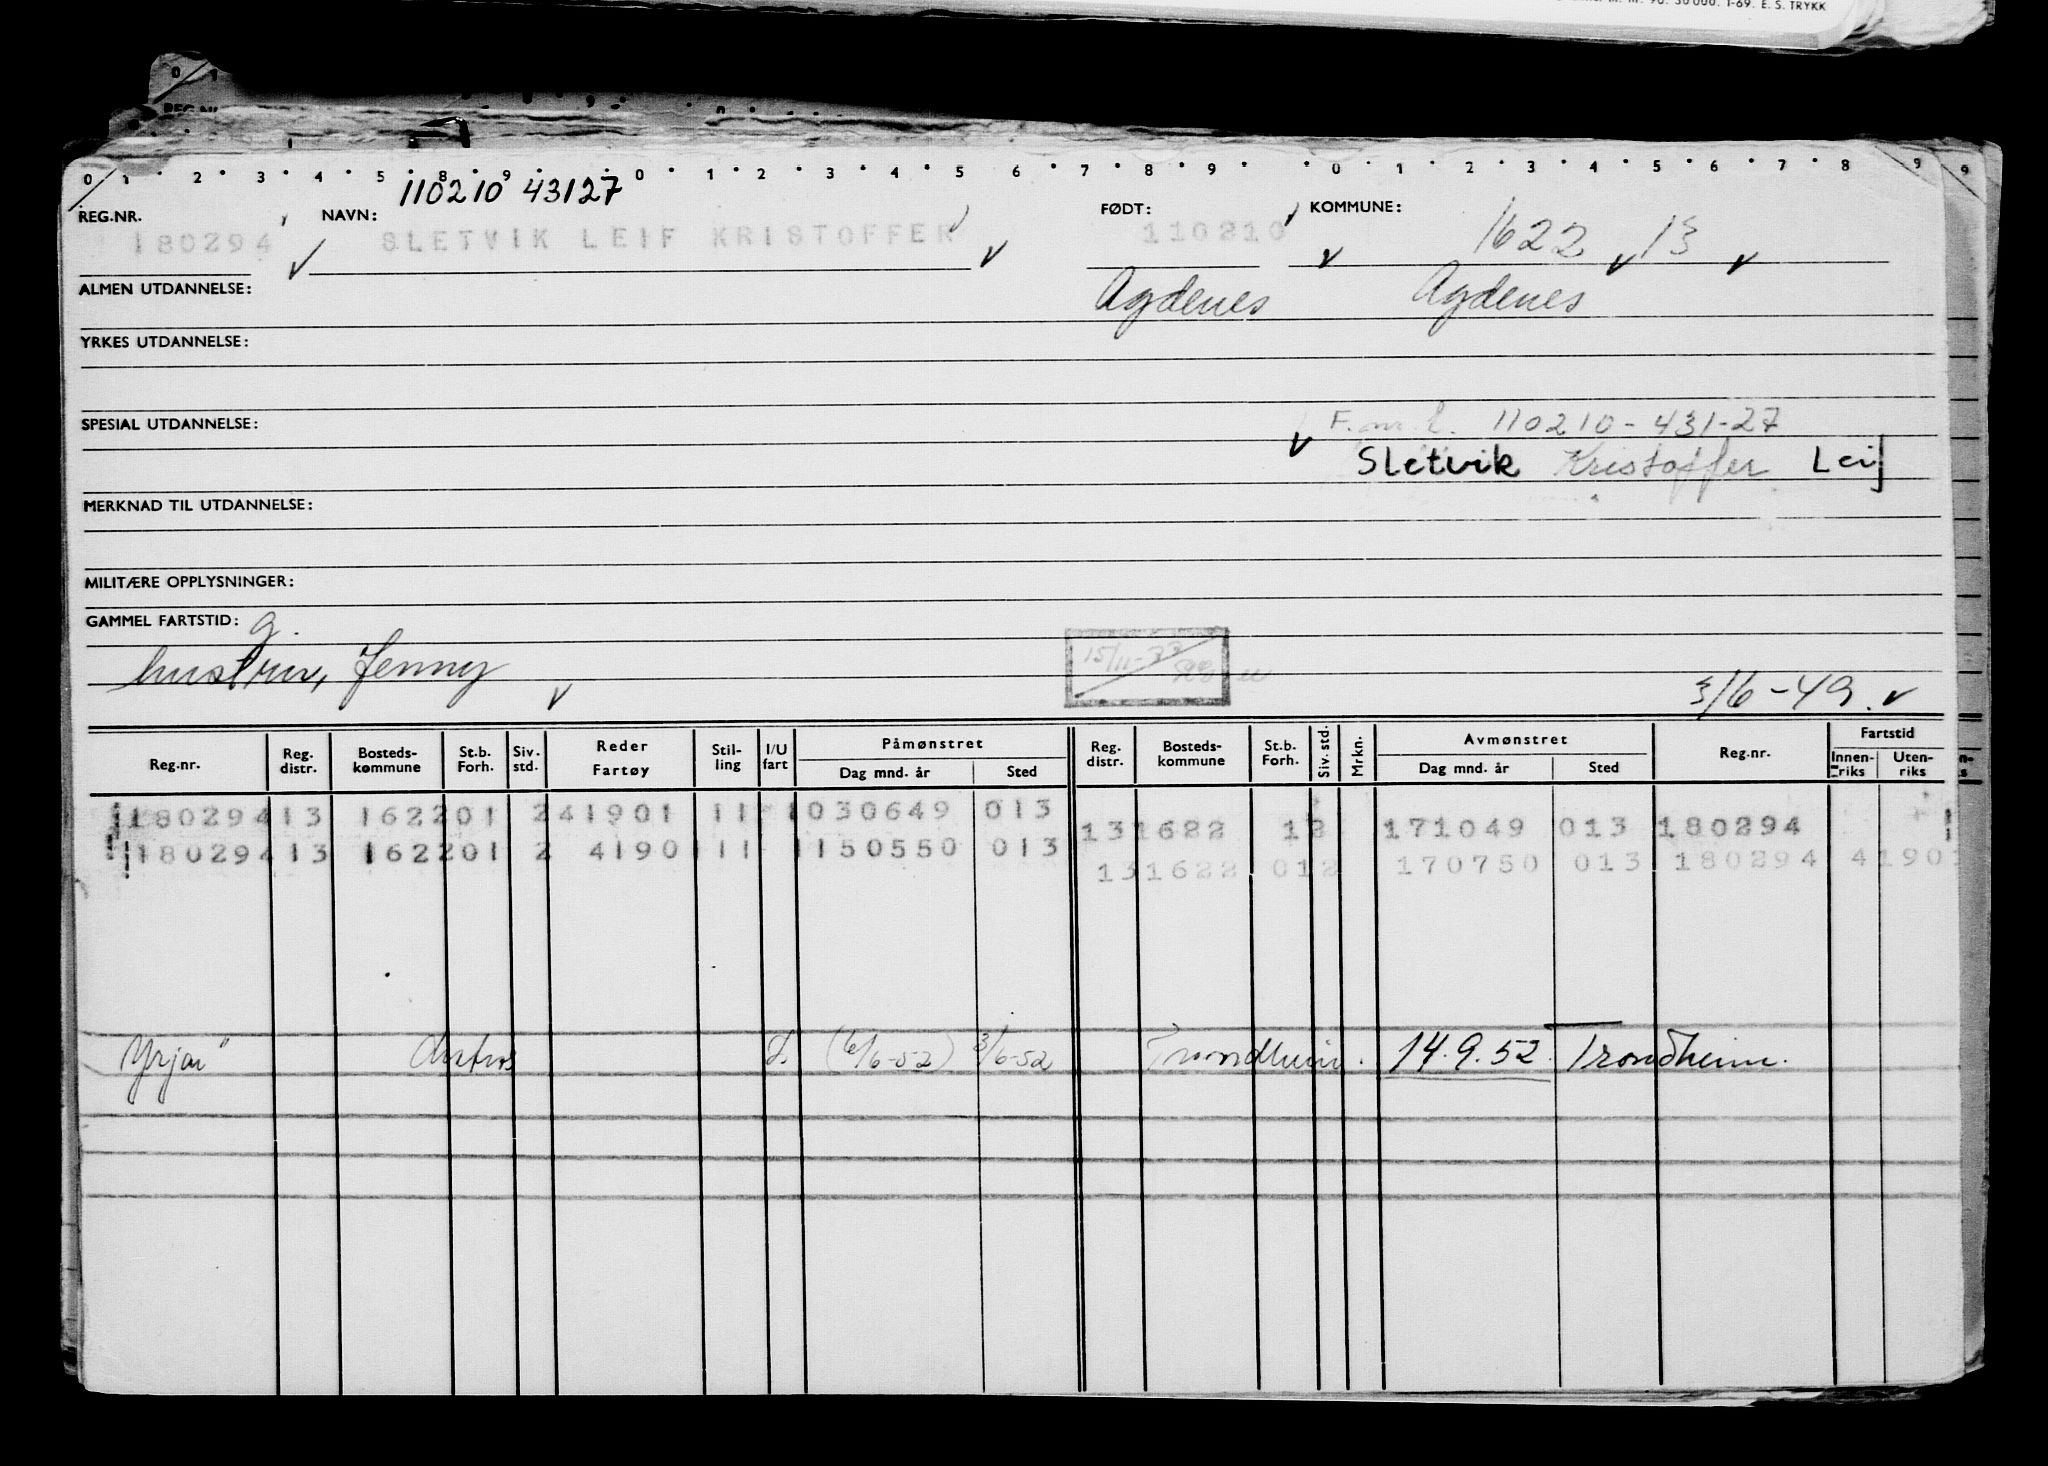 M. nr. 90. 30 000. 1-69. E. S. TRYKK
0 1
REG.N
0 1 2 3 4 5 8 9 0 1 2 3 4 5 6 7 8 9 0 1 2 3 4 5 6 7 8 9 9
110210 43127
REG.NR. NAVN: FØDT: KOMMUNE:
180294 SLETVIK LEIF KRISTOFFER 110210 1622 13
ALMEN UTDANNELSE: Agdenes Agdenes
YRKES UTDANNELSE:
SPESIAL UTDANNELSE: 110210-431-27
Sletvik Kristoffer Leif
MERKNAD TIL UTDANNELSE:
MILITÆRE OPPLYSNINGER:
GAMMEL FARTSTID: g.
hustru, Jenny 15/11-33
3/6-49.
Reg.nr. Reg. distr. Bosteds-kommune St.b. Forh. Siv. std. Reder Fartøy Stil-ling I/U fart Påmønstret Dag mnd. år Sted Reg. distr. Bosteds-kommune St.b. Forh. Siv. std. Mrkn. Avmønstret Dag mnd. år Sted Reg.nr. Fartstid Innen-riks Uten-riks
180294 13 1622 01 2 41901 11 1 030649 013 13 1622 12 171049 013 180294
180294 13 1622 01 2 4190 11 1 150550 013 13 1622 012 170750 013 180294 41901
Yrjar" (6/6-52) 3/6-52 Trondheim. 14.9.52. Trondheim.